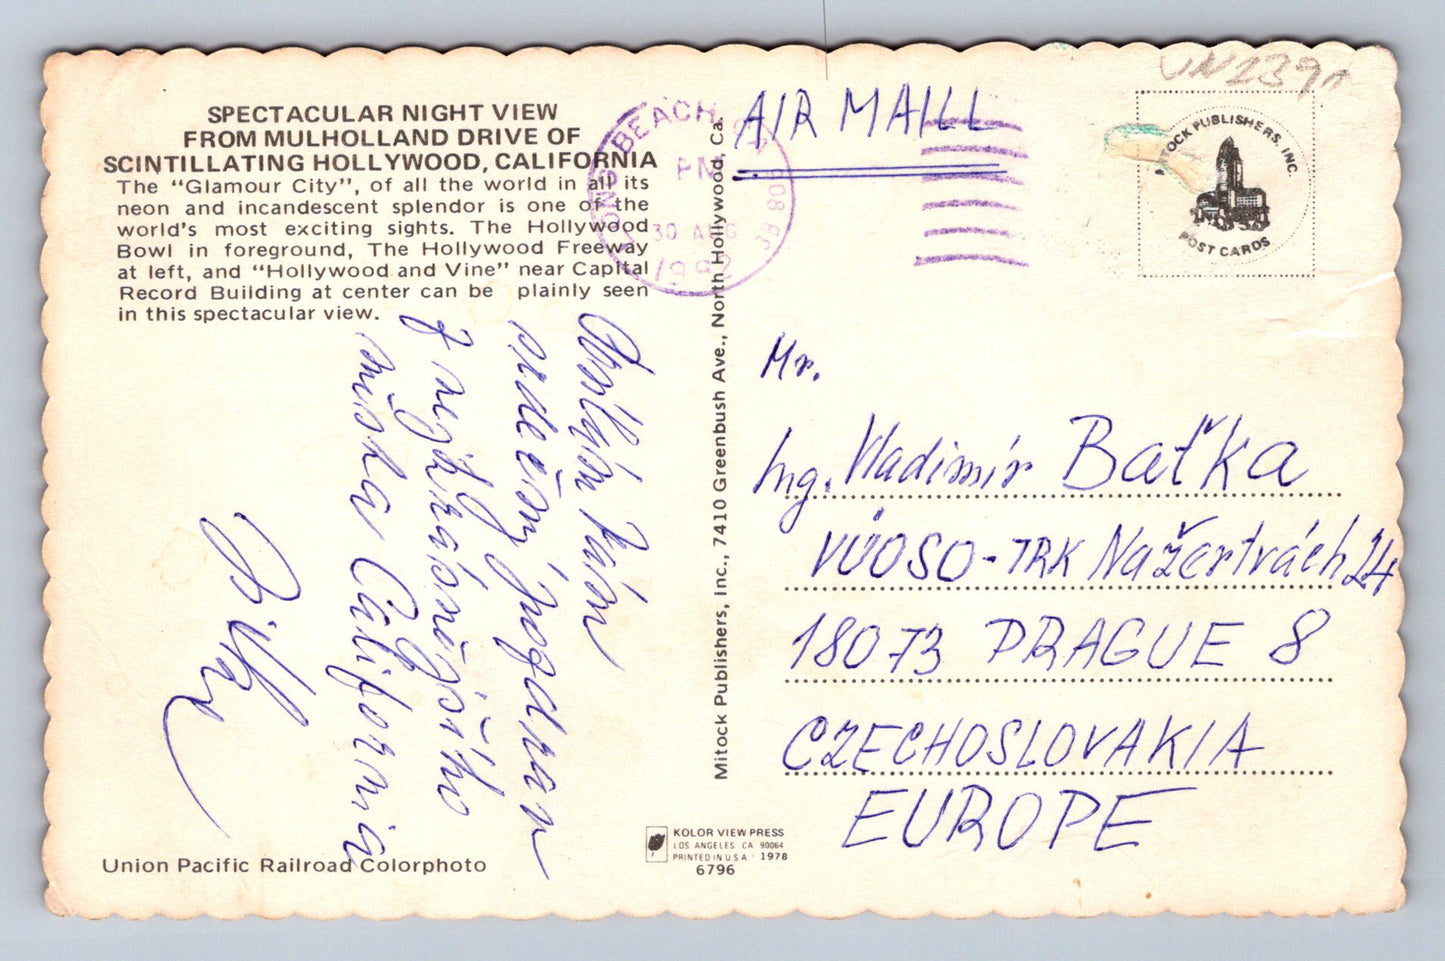 SPECTACULAR NIGHT VIEW
FROM MULHOLLAND DRIVE OF
SCINTILLATING HOLLYWOOD, CALIFORNIA
The "Glamour City", of all the world in all its
neon and incandescent splendor is one of the
world's most exciting sights. The Hollywood
Bowl in foreground, The Hollywood Freeway
at left, and "Hollywood and Vine" near Capital
Record Building at center can be plainly seen
in this spectacular view.
srdečný pozdrav
z nejzápadnějšího
California
Union Pacific Railroad Colorphoto
Mitock Publishers, Inc., 7410 Greenbush Ave., North Hollywood, Ca.
KOLOR VIEW PRESS
LOS ANGELES CA 90064
PRINTED IN U.S.A. 1978
6796
BEACH
PM
30 AUG
1992
UN239A
MITOCK PUBLISHERS, INC.
POST CARDS
AIR MAILL
Mr.
Ing. Vladimír Baťka
VÚOSO-TRK Na Žertvách 24
18073 PRAGUE 8
CZECHOSLOVAKIA
EUROPE